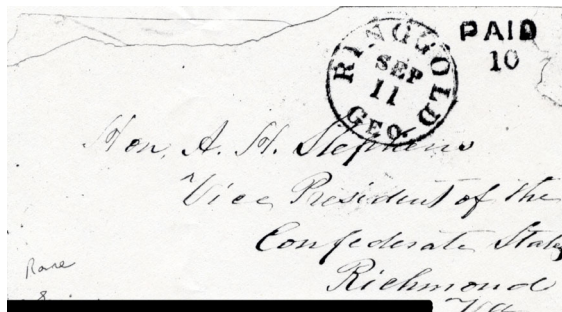 PAID
10
RINGGOLD
SEP
11
GEO.
Hon. A. H. Stephens
Vice President of the
Confederate States
Richmond
Va
Rare